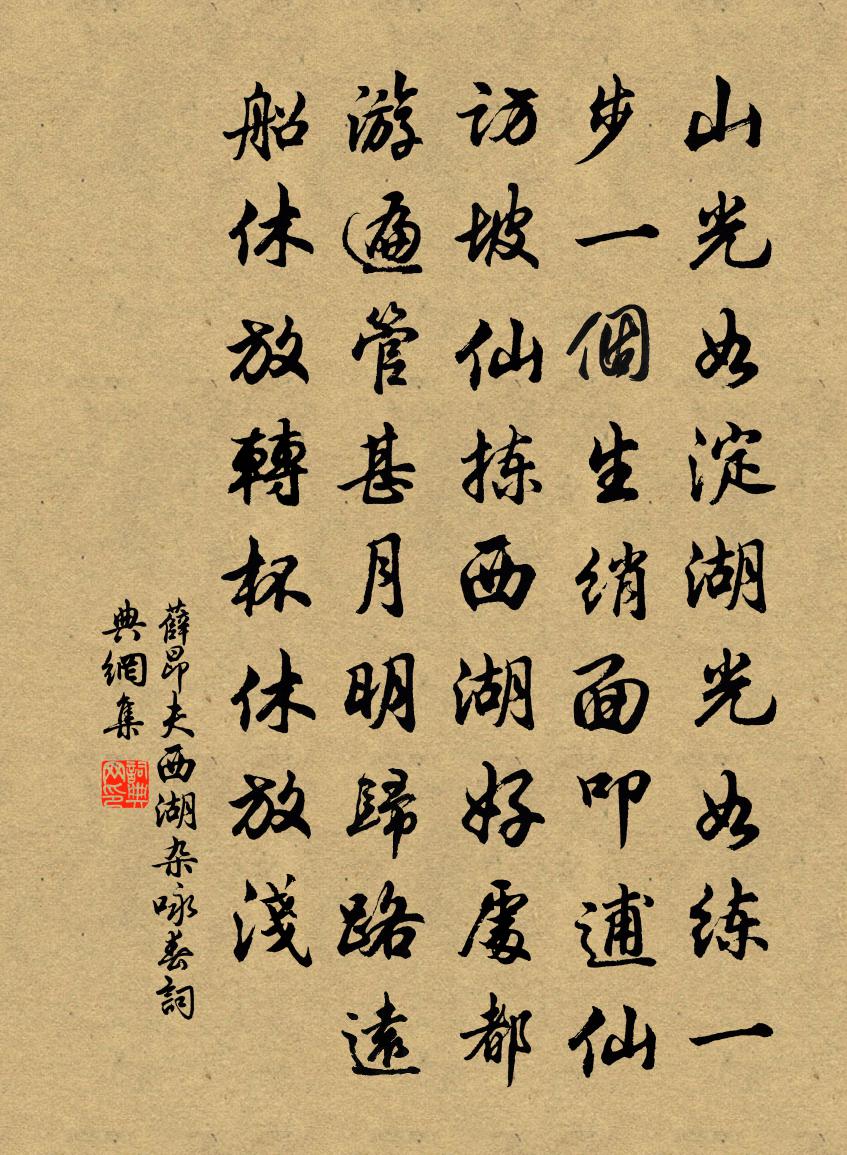 山光如淀湖光如练一
步一個生绡面叩逋仙
访坡仙拣西湖好處都
游遍管甚月明歸路遠
船休放轉杯休放淺
薛昂夫西湖杂咏春詞
典網集
詞典
网印